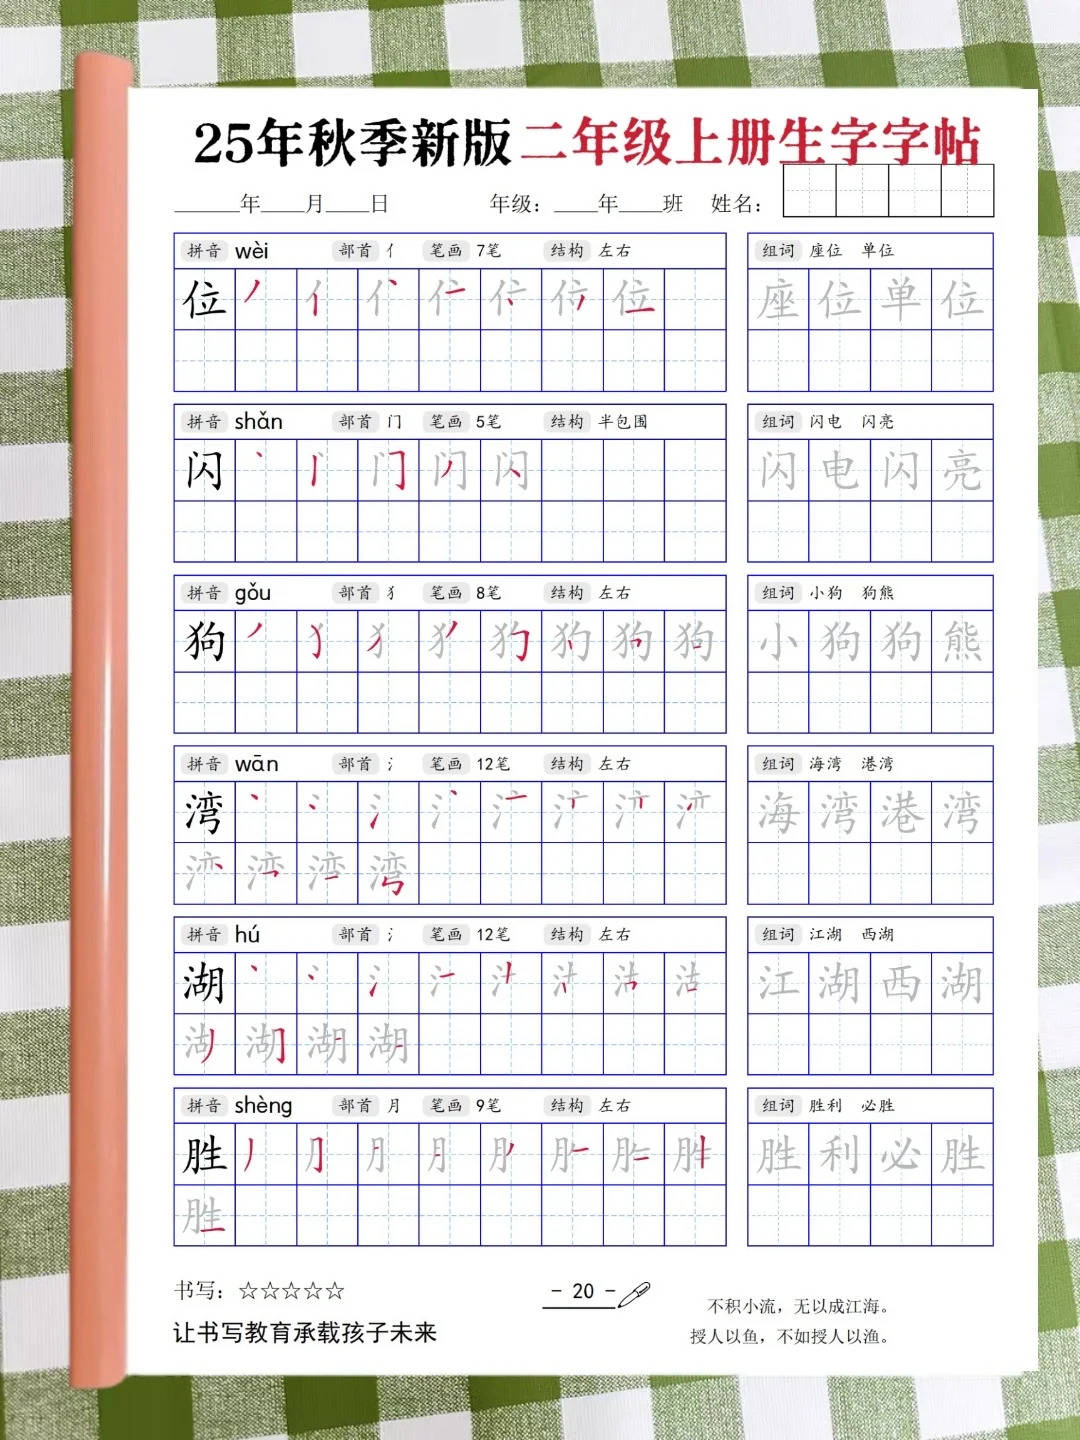 25年秋季新版二年级上册生字字帖
____年____月____日 年级：____年____班 姓名：
拼音 wèi 部首 亻 笔画 7笔 结构 左右 组词 座位 单位
位 座位单位
拼音 shǎn 部首 门 笔画 5笔 结构 半包围 组词 闪电 闪亮
闪 闪电闪亮
拼音 gǒu 部首 犭 笔画 8笔 结构 左右 组词 小狗 狗熊
狗 小狗狗熊
拼音 wān 部首 氵 笔画 12笔 结构 左右 组词 海湾 港湾
湾 海湾港湾
拼音 hú 部首 氵 笔画 12笔 结构 左右 组词 江湖 西湖
湖 江湖西湖
拼音 shèng 部首 月 笔画 9笔 结构 左右 组词 胜利 必胜
胜 胜利必胜
书写：☆☆☆☆☆
- 20 -
不积小流，无以成江海。
让书写教育承载孩子未来
授人以鱼，不如授人以渔。